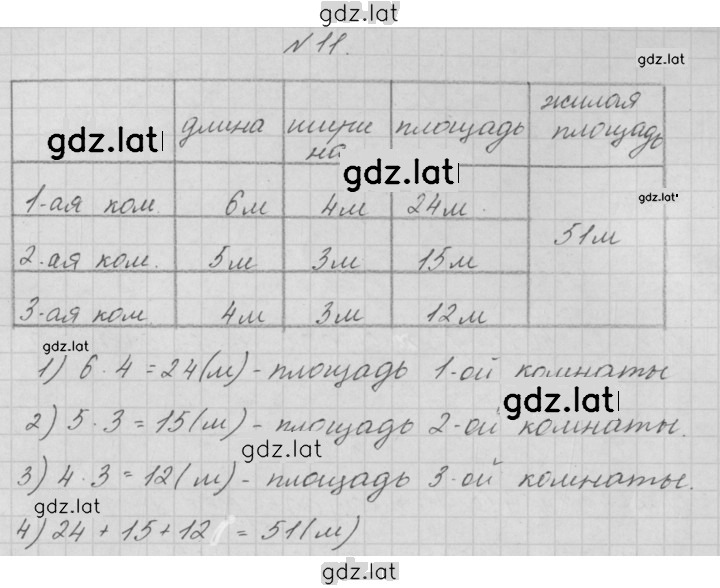 gdz.lat
N 11.
gdz.lat
gdz.lat длина шири на площадь жилая площадь
gdz.lat
1-ая ком. 6м 4м 24м. gdz.lat
51м
2-ая ком. 5м 3м 15м
3-ая ком. 4м 3м 12м
gdz.lat
1) 6 · 4 = 24(м) - площадь 1-ой комнаты
gdz.lat
2) 5 · 3 = 15(м) - площадь 2-ой комнаты.
gdz.lat
3) 4 · 3 = 12(м) - площадь 3-ой комнаты.
gdz.lat
4) 24 + 15 + 12 = 51(м)
gdz.lat